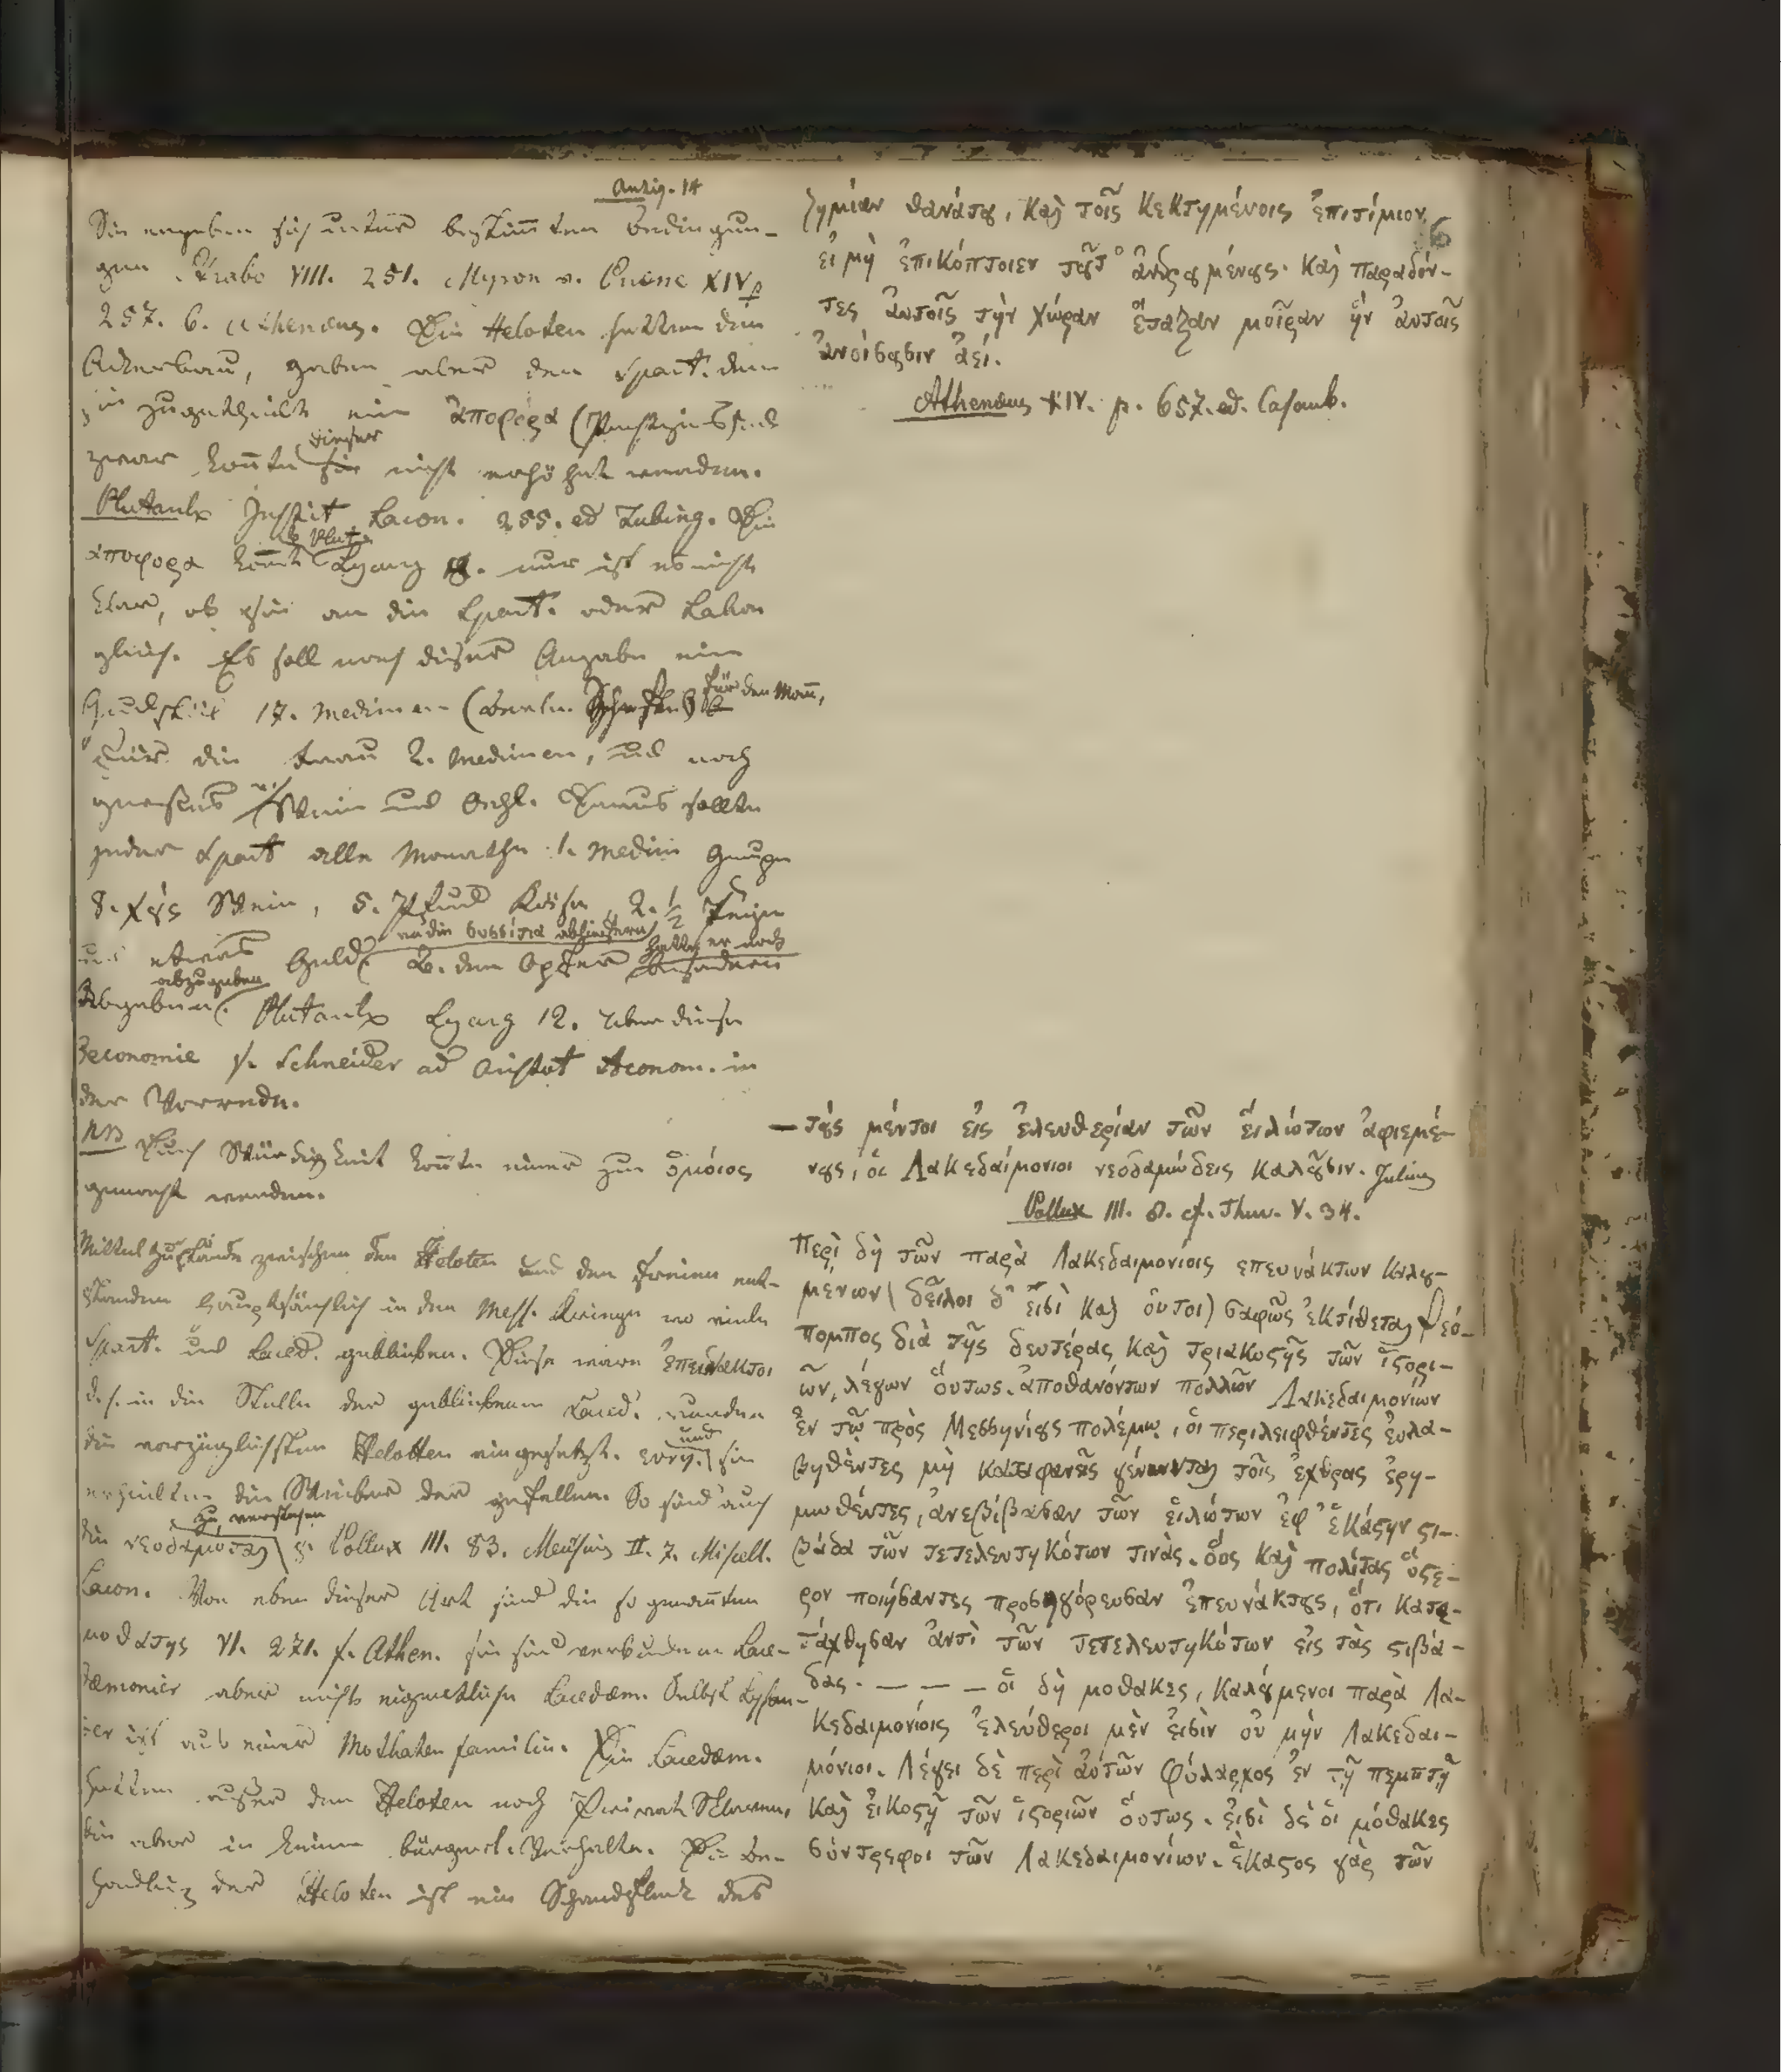 Antiq. 14
Sie ergeben sich unter bestimten Bedingun-
gen. Strabo VIII. 251. Myron v. Priene XIV p
257. 6. Athenaeus. Die Heloten hatten den
Ackerbau, gaben aber den Spart. dem
sie zugetheilt eine ἀποφορα (Pachtzins) und
zwar konte dieser nicht erhöhet werden.
Plutarch Instit. Lacon. 255. ed Tubing. Die
αποφορα komt b. Plut. Lycurg 8. nur ist es nicht
klar, ob sie an die Spart. oder Lakon
gieng. Es soll nach dieser Angabe ein
Grundstück 17. Medimnen (Berlin. Scheffel) für den Man,
für die Frau 2. Medimnen, und noch
Wein und Oehl. Daraus sollte
jeder Spart alle Monathe 1. Medim Gerste
8. χῦς Wein, 5. Pfund Käse, 2. ½ Feigen
und etwas Geld an die συσσίτια abliefern. B. den Opfer hatte er noch besondere
Abgaben abzugeben. Plutarch Lycurg 12. Ueber diese
Oeconomie s. Schneider ad Aristot Oeconom. in
der Vorrede.
NB Durch Würdigkeit konte einer zum ὁμόιος
gemacht werden.
Mittelzustände zwischen den Heloten und den Freien ent-
standen hauptsächlich in den Mess. Kriegen wo viele
Spart. und Laced. geblieben. Diese waren ἐπευνακτοι
d. h. in die Stelle der gebliebenen Laced. wurden
die vorzüglichsten Heloten eingesetzt. und sie
erhielten die Weiber der gefallen. So sind auch
die νεοδαμοται zu verstehen s. Pollux III. 83. Meursius II. 7. Miscell.
Lacon. Von eben dieser Art sind die so genannten
μοθατης VI. 271. f. Athen. sie sind verbundene Lace-
daemonier aber nicht eigentliche Lacedaem. Selbst Lysan-
der ist aus einer Mothaken familie. Die Lacedaem.
hatten außer den Heloten noch Privat Sclaven,
die aber in keinem bürgerl. Verhältn. Die Be-
handlung der Heloten ist ein Schandfleck des
6
ζημίαν θανάτȣ, καὶ τοῖς κεκτημένοις ἐπιτίμιον
εἰ μὴ ἐπικόπτοιεν τȣ̀ς ἁνδρȣμένȣς. Καὶ παραδόν-
τες ἀυτοῖς τὴν χώραν ἔταξαν μοῖραν ἣν ἀυτοῖς
ἀνοίσȣσιν ἀεί.
Athenaeus XIV. p. 657. ed. Casaub.
— τȣ̀ς μέντοι εἰς ἐλευθερίαν τῶν ἑιλώτων ἀφιεμέ-
νȣς, ὁι Λακεδαίμονιοι νεοδαμώδεις καλȣ̃σιν. Julius
Pollux III. 8. cf. Thuc. V. 34.
Περὶ δὴ τῶν παρὰ Λακεδαιμονίοις επευνάκτων καλȣ-
μένων (δεῖλοι δ' ἐισὶ καὶ ȣ̔͂τοι) σαφῶς ἐκτίθεται Θεό-
πομπος διὰ τῆς δευτέρας καὶ τριακοςῆς τῶν ἱςορι-
ῶν, λέγων ὅυτως. ἀποθανόντων πολλῶν Λακεδαιμονίων
ἐν τῷ πρὸς Μεσσηνίȣς πολέμῳ, ὁι περιλειφθέντες ἐυλα-
βηθέντες μὴ καταφανεῖς γένωνται τοῖς ἐχθρας ἐρη-
μωθέντες, ἀνεβίβασαν τῶν ἑιλώτων ἐφ' ἑκάςην ςι-
βάδα τῶν τετελευτηκότων τινὰς. ὃς καὶ πολίτας ὕςε-
ρον ποιήσαντες προσηγόρευσαν ἐπευνάκτȣς, ὅτι κατε-
τάχθησαν ἀντὶ τῶν τετελευτηκότων εἰς τὰς ςιβά-
δας. — — — ὁι δὴ μοθακες, καλȣ́μενοι παρὰ Λα-
κεδαιμονίοις ἐλεύθεροι μὲν ἐισὶν ȣ̓ μὴν Λακεδαι-
μόνιοι. Λέγει δὲ περὶ ἀυτῶν Φύλαρχος ἐν τῇ πεμπτῇ
καὶ ἐικοςῇ τῶν ἱςοριῶν ὅυτως. ἐισὶ δὲ ὁι μόθακες
σύντρεφοι τῶν Λακεδαιμονίων. ἕκαςος γὰρ τῶν